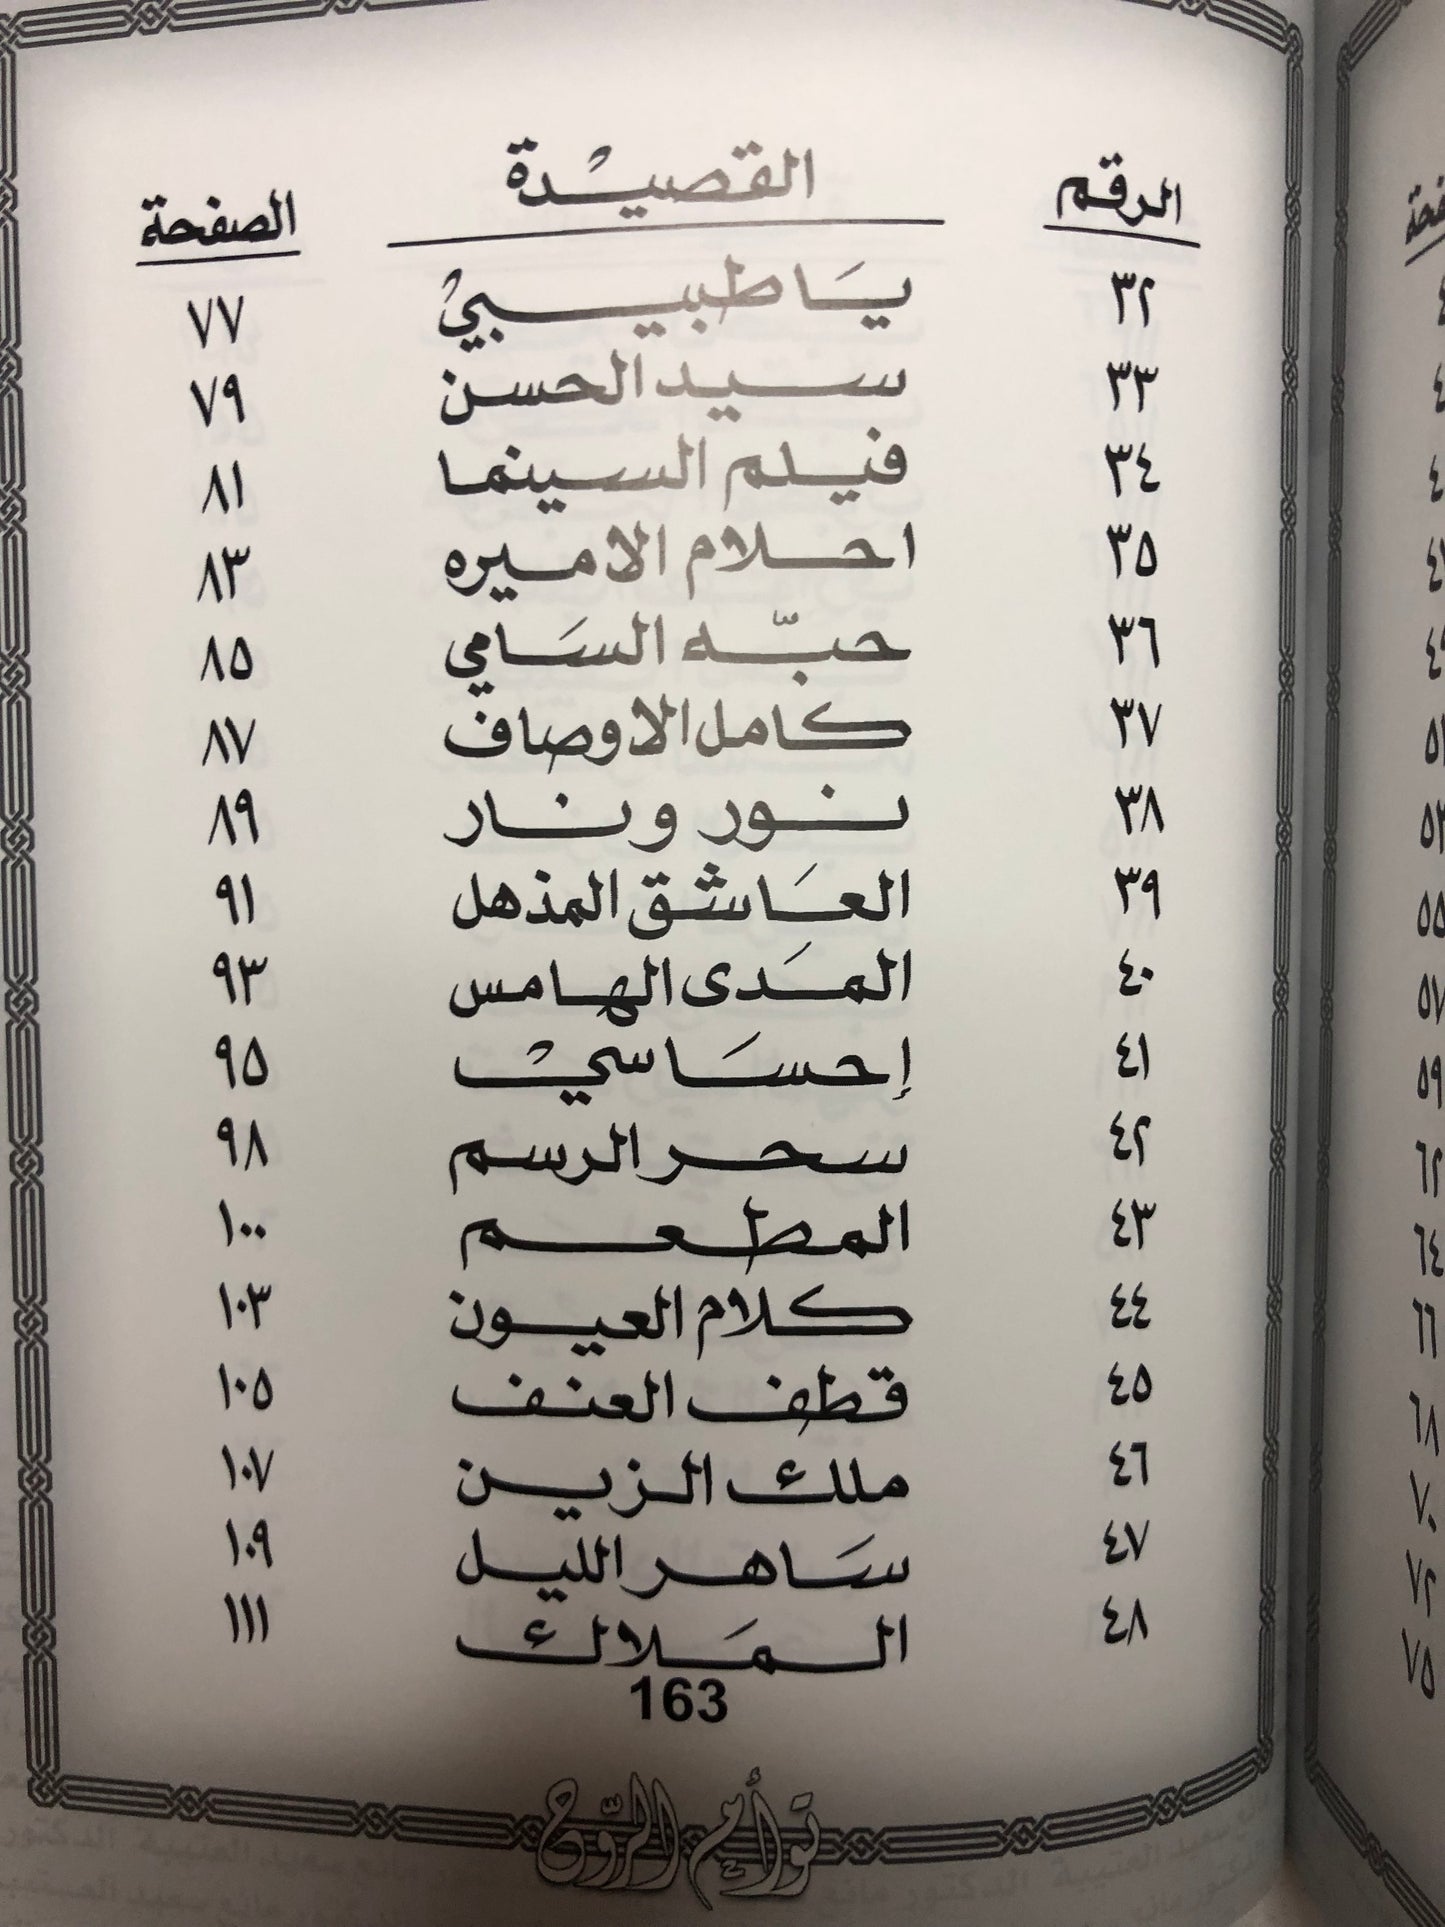 الرقم القصيدة الصفحة
٣٢ يَا طبيبيْ ٧٧
٣٣ سيد الحسن ٧٩
٣٤ فيلم السينما ٨١
٣٥ احلام الاميره ٨٣
٣٦ حبّه السَامي ٨٥
٣٧ كامل الاوصاف ٨٧
٣٨ نور ونار ٨٩
٣٩ العَاشق المذهل ٩١
٤٠ المَدى الهامس ٩٣
٤١ إحسَاسيْ ٩٥
٤٢ سحر الرسم ٩٨
٤٣ المطعم ١٠٠
٤٤ كلام العيون ١٠٣
٤٥ قطف العنف ١٠٥
٤٦ ملك الزين ١٠٧
٤٧ سَاهر الليل ١٠٩
٤٨ المَلاك ١١١
163
توأم الرّوح